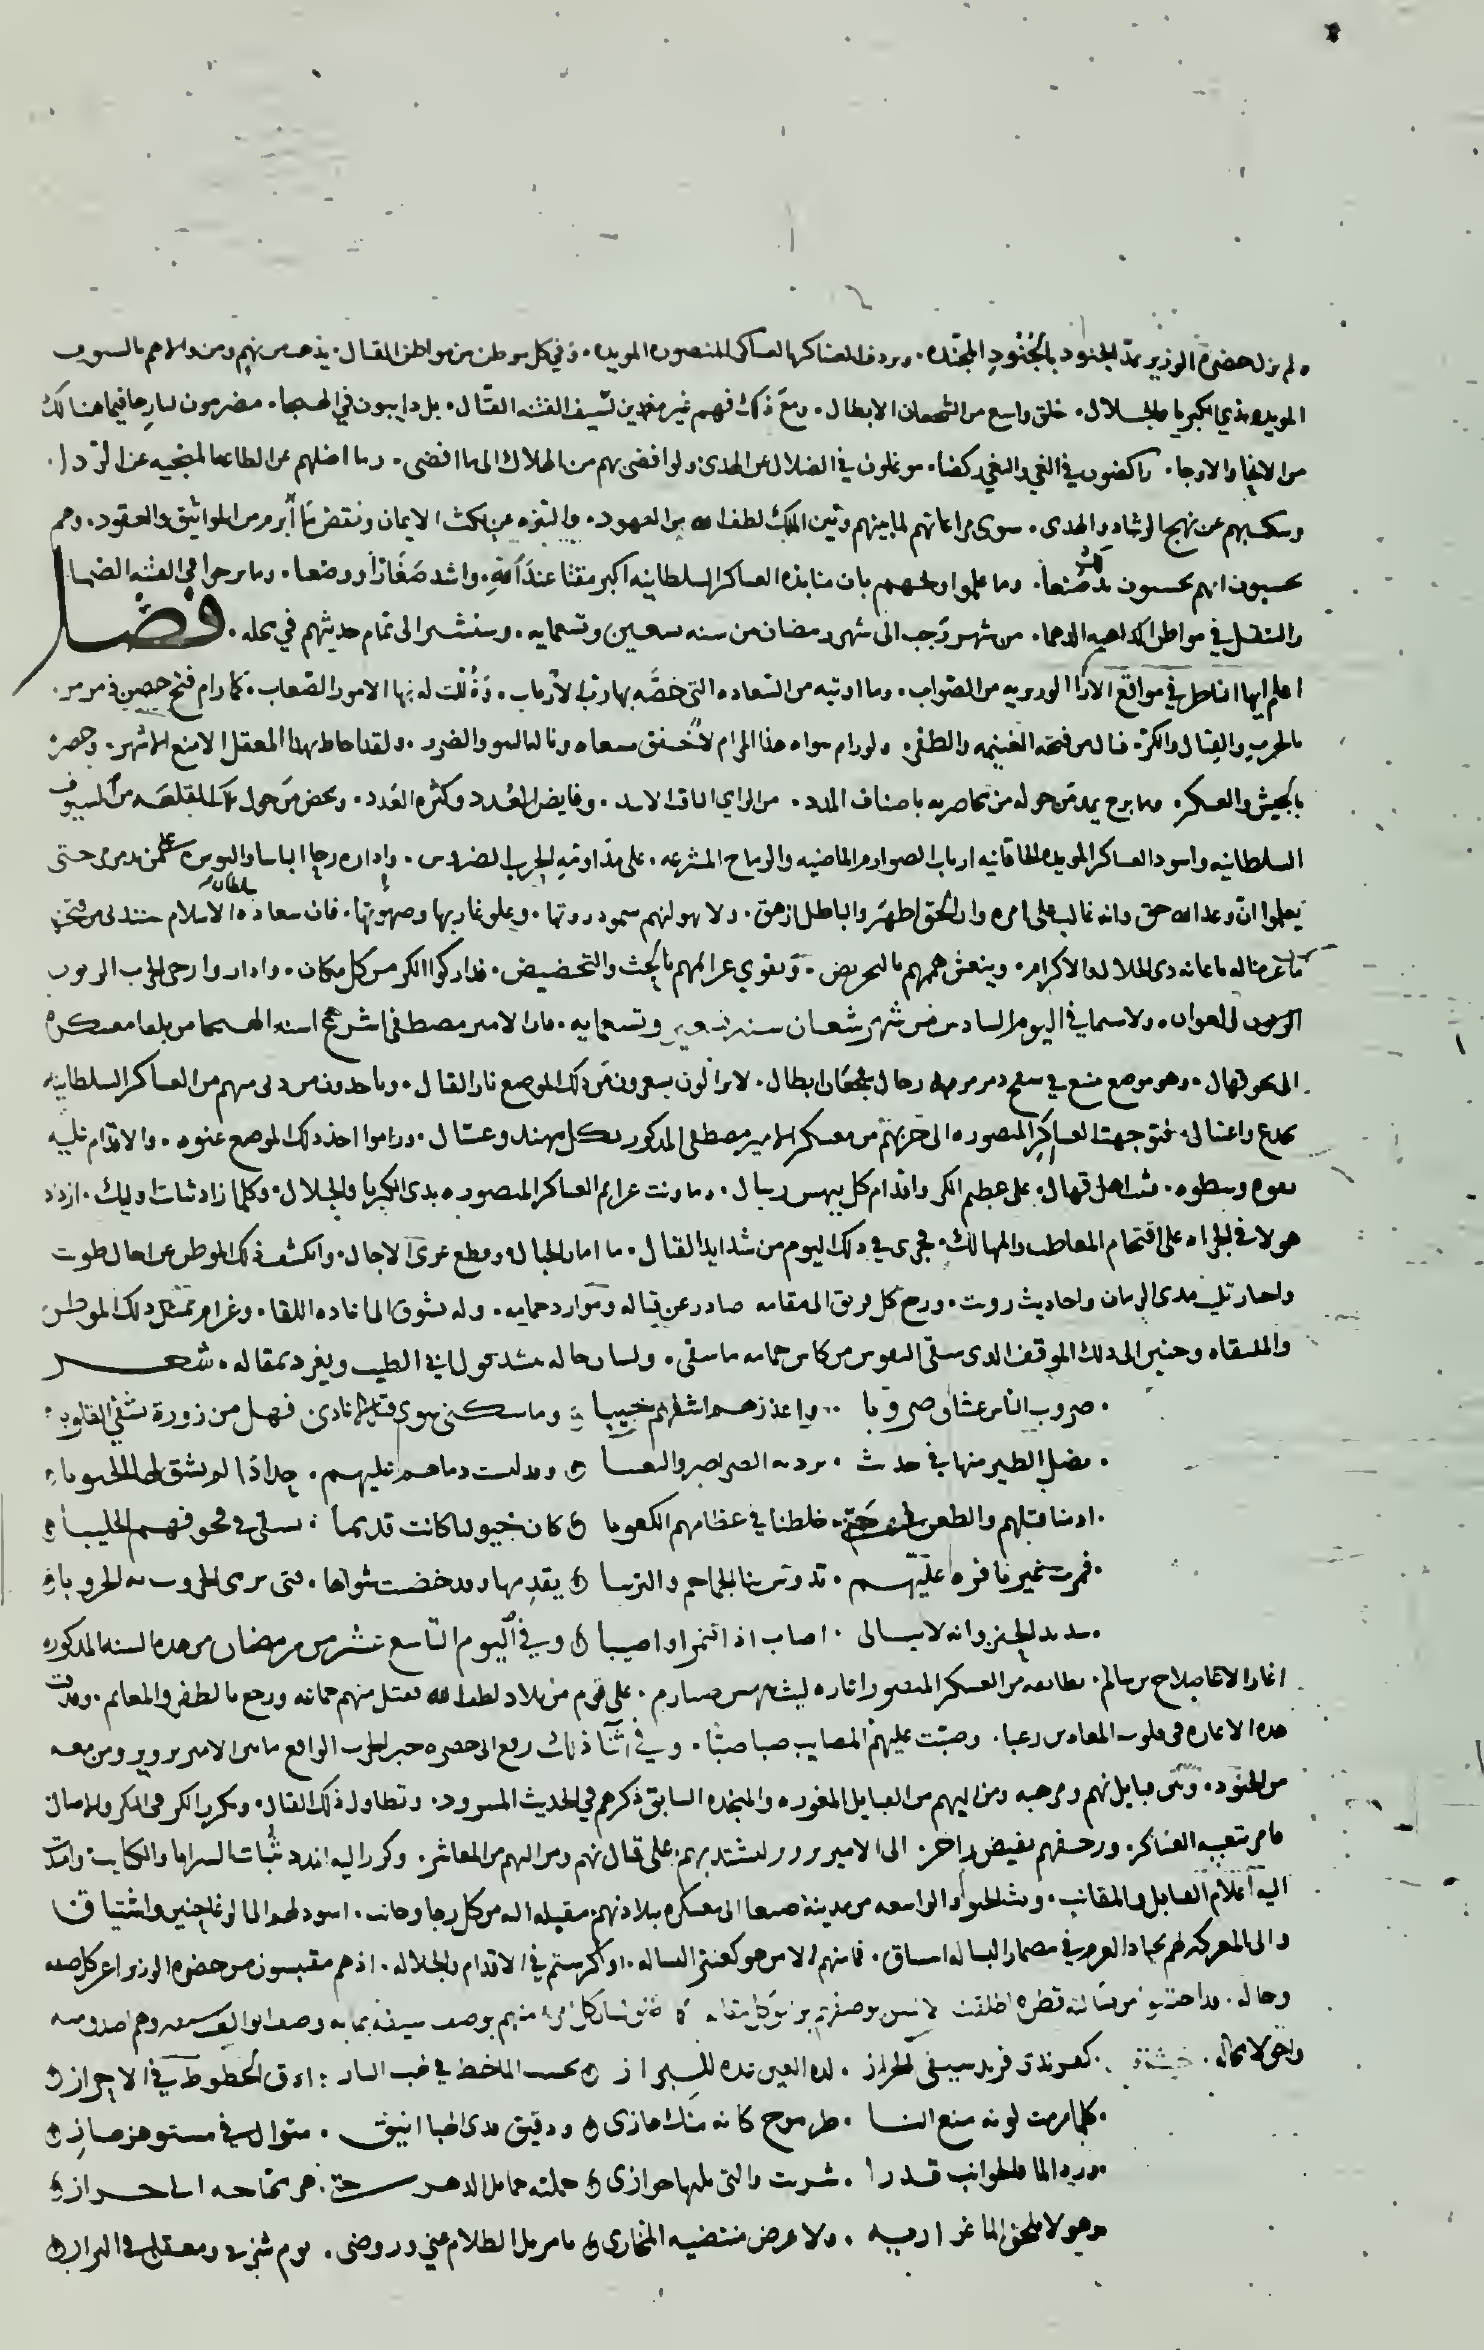 ولم يزل حضرة الوزير يمدّ الجنود بالجُنُودِ المجنّده، ويردف العساكر بالعساكر المنصوره المويده، وفي كل موطن من مواطن القتال يذهب منهم ومن والاهم بالسيوف
المويده بذي الكبريا والجلال، خلق واسع من الشجعان الابطال، ومع ذلك فهم غير مغمدين لسيف الفتنه القتال، بل دايبون في الهيجا، مضرمون لنارها فيما هنالك
من الانحا والارجا، راكضون في الغي والبغي ركضا، موغلون في الضلال عن الهدى ولو افضى بهم من الهلاك الى ما افضى، وما اضلهم عن الطاعه المنجيه عن الردا،
ونكبهم عن نهج الرشاد والهدى، سوى مراعاتهم لما بينهم وبين الملك لطف الله من العهود، والتنزه عن نكث الايمان ونقض ما أبرم من المواثيق والعقود، وهم
يحسبون انهم يحسنون بذلك صنعا، وما علموا ويلهم بان منابذه العساكر السلطانيه اكبر مقتا عند الله، واشد صغارًا ووضعا، وما برحوا في الفتنه الصما
والتنقل في مواطن الداهيه الدهما، من شهر رجب الى شهر رمضان من سنه تسعين وتسعمايه، وسنشير الى تمام حديثهم في محله، فصل
اعلم ايها الناظر في مواقع الارا الوزيريه من الصواب، وما اوتيه من السعاده التي خصّه بها رب الارباب، وذُلّلت له بها الامور الصعاب، كما رام فتح حصن ذمرمر
بالحرب والقتال والكر، فنال من فتحه الغنيمه والظفر، ولو رام سواه هذا المرام لاخفق مسعاه ونال البور والضرر، ولقد احاط بهذا المعقل الامنع الاشهر، وحصره
بالجيش والعسكر، وما برح يمد من حوله من محاصريه باصناف المدد، من الراي الثاقب الاسد، وفايض العُدد وكثره العَدد، ويحض من حول تلك القلعه من السيوف
السلطانيه واسود العساكر المويده الخاقانيه ارباب الصوارم الماضيه والرماح المشرعه، على مداومه الحرب الضروس، واداره رحا الباسا والبوس، على من بذمرمر حتى
يعلموا انّ وعد الله حق وانه غالب على امره وان الحق اظهر والباطل ازهق، ولا يهولنهم سمو ذروتها، وعلو غاربها وصهوتها، فان سعاده سلطان الاسلام
مناله باعانه ذي الجلاله والاكرام، وينعش هممهم بالتحريض، ويقوي عزايمهم بالحث والتحضيض، فتداركوا الكر من كل مكان، واداروا رحى الحرب الزبون
العوان، ولا سيما في اليوم السادس من شهر شعبان سنه تسعين وتسعمايه، فان الامير مصطفى اشرع اسنه الهيجا من تلقا معسكره
الى نحو قهال، وهو موضع منيع في سفح ذمرمر فيه رجال شجعان ابطال، لا يزالون يسعرون من ذلك الموضع نار القتال، وياخذون من دنى منهم من العساكر السلطانيه
بخدع واغتيال، فتوجهت العساكر المنصوره الى حربهم من معسكر الامير مصطفى المذكور بكل مهند وعسّال، وراموا اخذ ذلك الموضع عنوه، والاقدام عليه
بقوه وسطوه، فثبت اهل قهال، على عظيم الكر واقدام كل بيهس ريبال، وما ونت عزايم العساكر المنصوره بذي الكبريا والجلال، وكلما زاد ثبات اوليك، ازداد
هولا في الجراه على اقتحام المعاطب والمهالك، فجرى في ذلك اليوم من شدايد القتال، ما امار الجبال، وقطع عرى الاجال، وانكشف ذلك الموطن عن اجال طوت
واخبار تليت مدى الزمان واحاديث روت، ورجع كل فريق الى مقامه صادر عن قتاله وموارد حمامه، وله تشوق الى اعاده اللقا، وغرام بمثل ذلك الموطن
والملتقاه وحنين الى ذلك الموقف الذي سقى النفوس من كاس حمامه ما سقى، ولسان حاله ينشد قول ابي الطيب ويغرد بمقاله، شعـــر
ضروب الناس عشاق ضروبا ، واعذرهم اشفهم حبيبا ، وما سكني سوى قتل الاعادي ، فهل من زورة تشفي القلوبا
تضل الطير منها في حديث ، يرد به الصراصر والنعيبا ، وقد لبست دماهم عليهم ، حدادًا لم يشق لها الجيوبا
ادمنا قتلهم والطعن حتى ، خلطنا في عظامهم الكعوبا ، كان خيولنا كانت قديما ، تسقى في قحوفهم الحليبا
فمرت غير نافره عليهم ، تدوس بنا الجماجم والتريبا ، يقدمها وقد خضبت شواها ، فتى ترمي الحروب به الحروبا
شديد الخنزوانه لا يبالي ، اصاب اذا تنمر او اصيبا ، وفي اليوم التاسع عشر من رمضان من هذه السنه المذكوره
اغار الاغا صلاح بن سالم، بطايفه من العسكر المنصور اغاره ليث بيهس صارم، على قوم من بلاد لطف الله فقتل منهم جماعه ورجع بالظفر والمغانم، وقذفت
هذه الاغاره في قلوب المعاندين رعبا، وصبّت عليهم المصايب صبا صبّا، وفي اثنا ذلك رفع الى حضره الوزير خبر الحرب الواقع ما بين الامير ومن معه
من الجنود، وبين قبايل نهم ومرهبه ومن اليهم من القبايل المغوره والمنجده السابق ذكرهم في الحديث المسرود، وتطاول ذلك القتال، وتكرير الكر في البكر والاصال
فامر بتعبيه العساكر، وزحفهم بفيض زاخر، الى الامير ليشتد بهم على قتال نهم ومن اليهم من المعاشر، وكرر اليه المدد ثُبات السرايا والكتايب وامتدت
اليه اعلام القبايل والمقانب، وبث الجنود الواسعه من مدينة صنعا الى معسكره ببلاد نهم مقبله اليه من كل رجا وجانب، اسود لهم الى الوغا حنين واشتياق
والى المعركه لهم بجياد العزم في مضمار البساله استباق، فما منهم الا من هو كعنتر البساله، او كرستم في الاقدام والجلاله، اذ هم مقتبسون من حضره الوزير اعز كل صفه
وحاله،
واخرى لا محاله، كفرندي فرند سيفي الجراز ، لذه العين عده للبراز ، تحسب الماخط في لهب النار ، ادق الخطوط في الاحراز
كلما رمت لونه منع الناظر موج كانه منك هازي ، ودقيق قدى الهبا انيق ، متوال في مستو هزهاز
ورد الما فالجوانب قدرا ، شربت والتي تليها جوازي ، حملته حمايل الدهر حتى ، هي محتاجه الى خراز
وهو لا تلحق الدما غراريه ، ولا عرض منتضيه المخازي ، يا مزيل الظلام عني وروضي ، يوم شربي ومعقلي في البراز